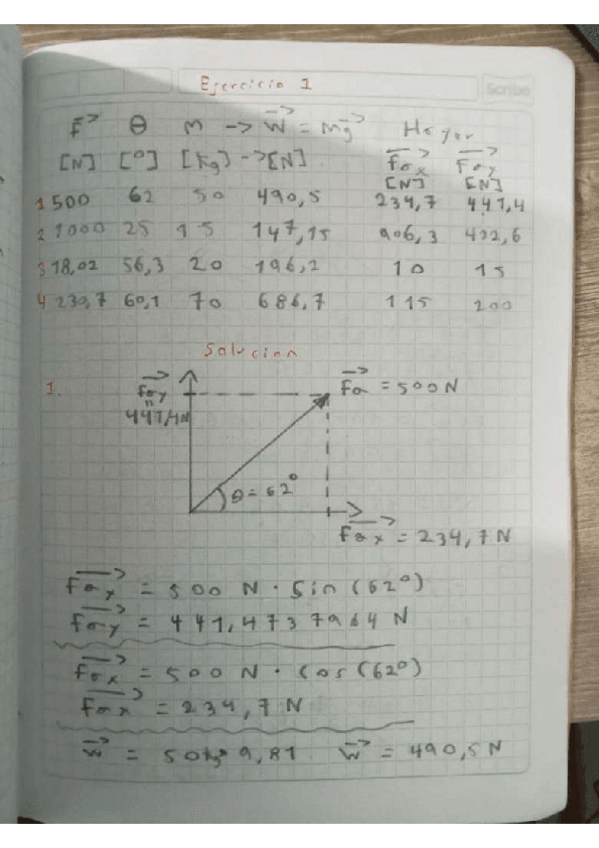 Ejercicio 1
Scribe
F θ M -> W = Mg Hayar
[N] [°] [kg] -> [N] Fax Fay
[N] [N]
1 500 62 50 490,5 234,7 441,4
2 1000 25 15 147,15 906,3 422,6
3 18,02 56,3 20 196,2 10 15
4 230,7 60,1 70 686,7 115 200
Solucion
1. Fay Fa = 500 N
"
441,4N
θ = 62°
Fax = 234,7 N
Fax = 500 N · Sin (62°)
Fay = 441,4737964 N
Fax = 500 N · Cos (62°)
Fax = 234,7 N
W = 50kg 9,81 W = 490,5 N